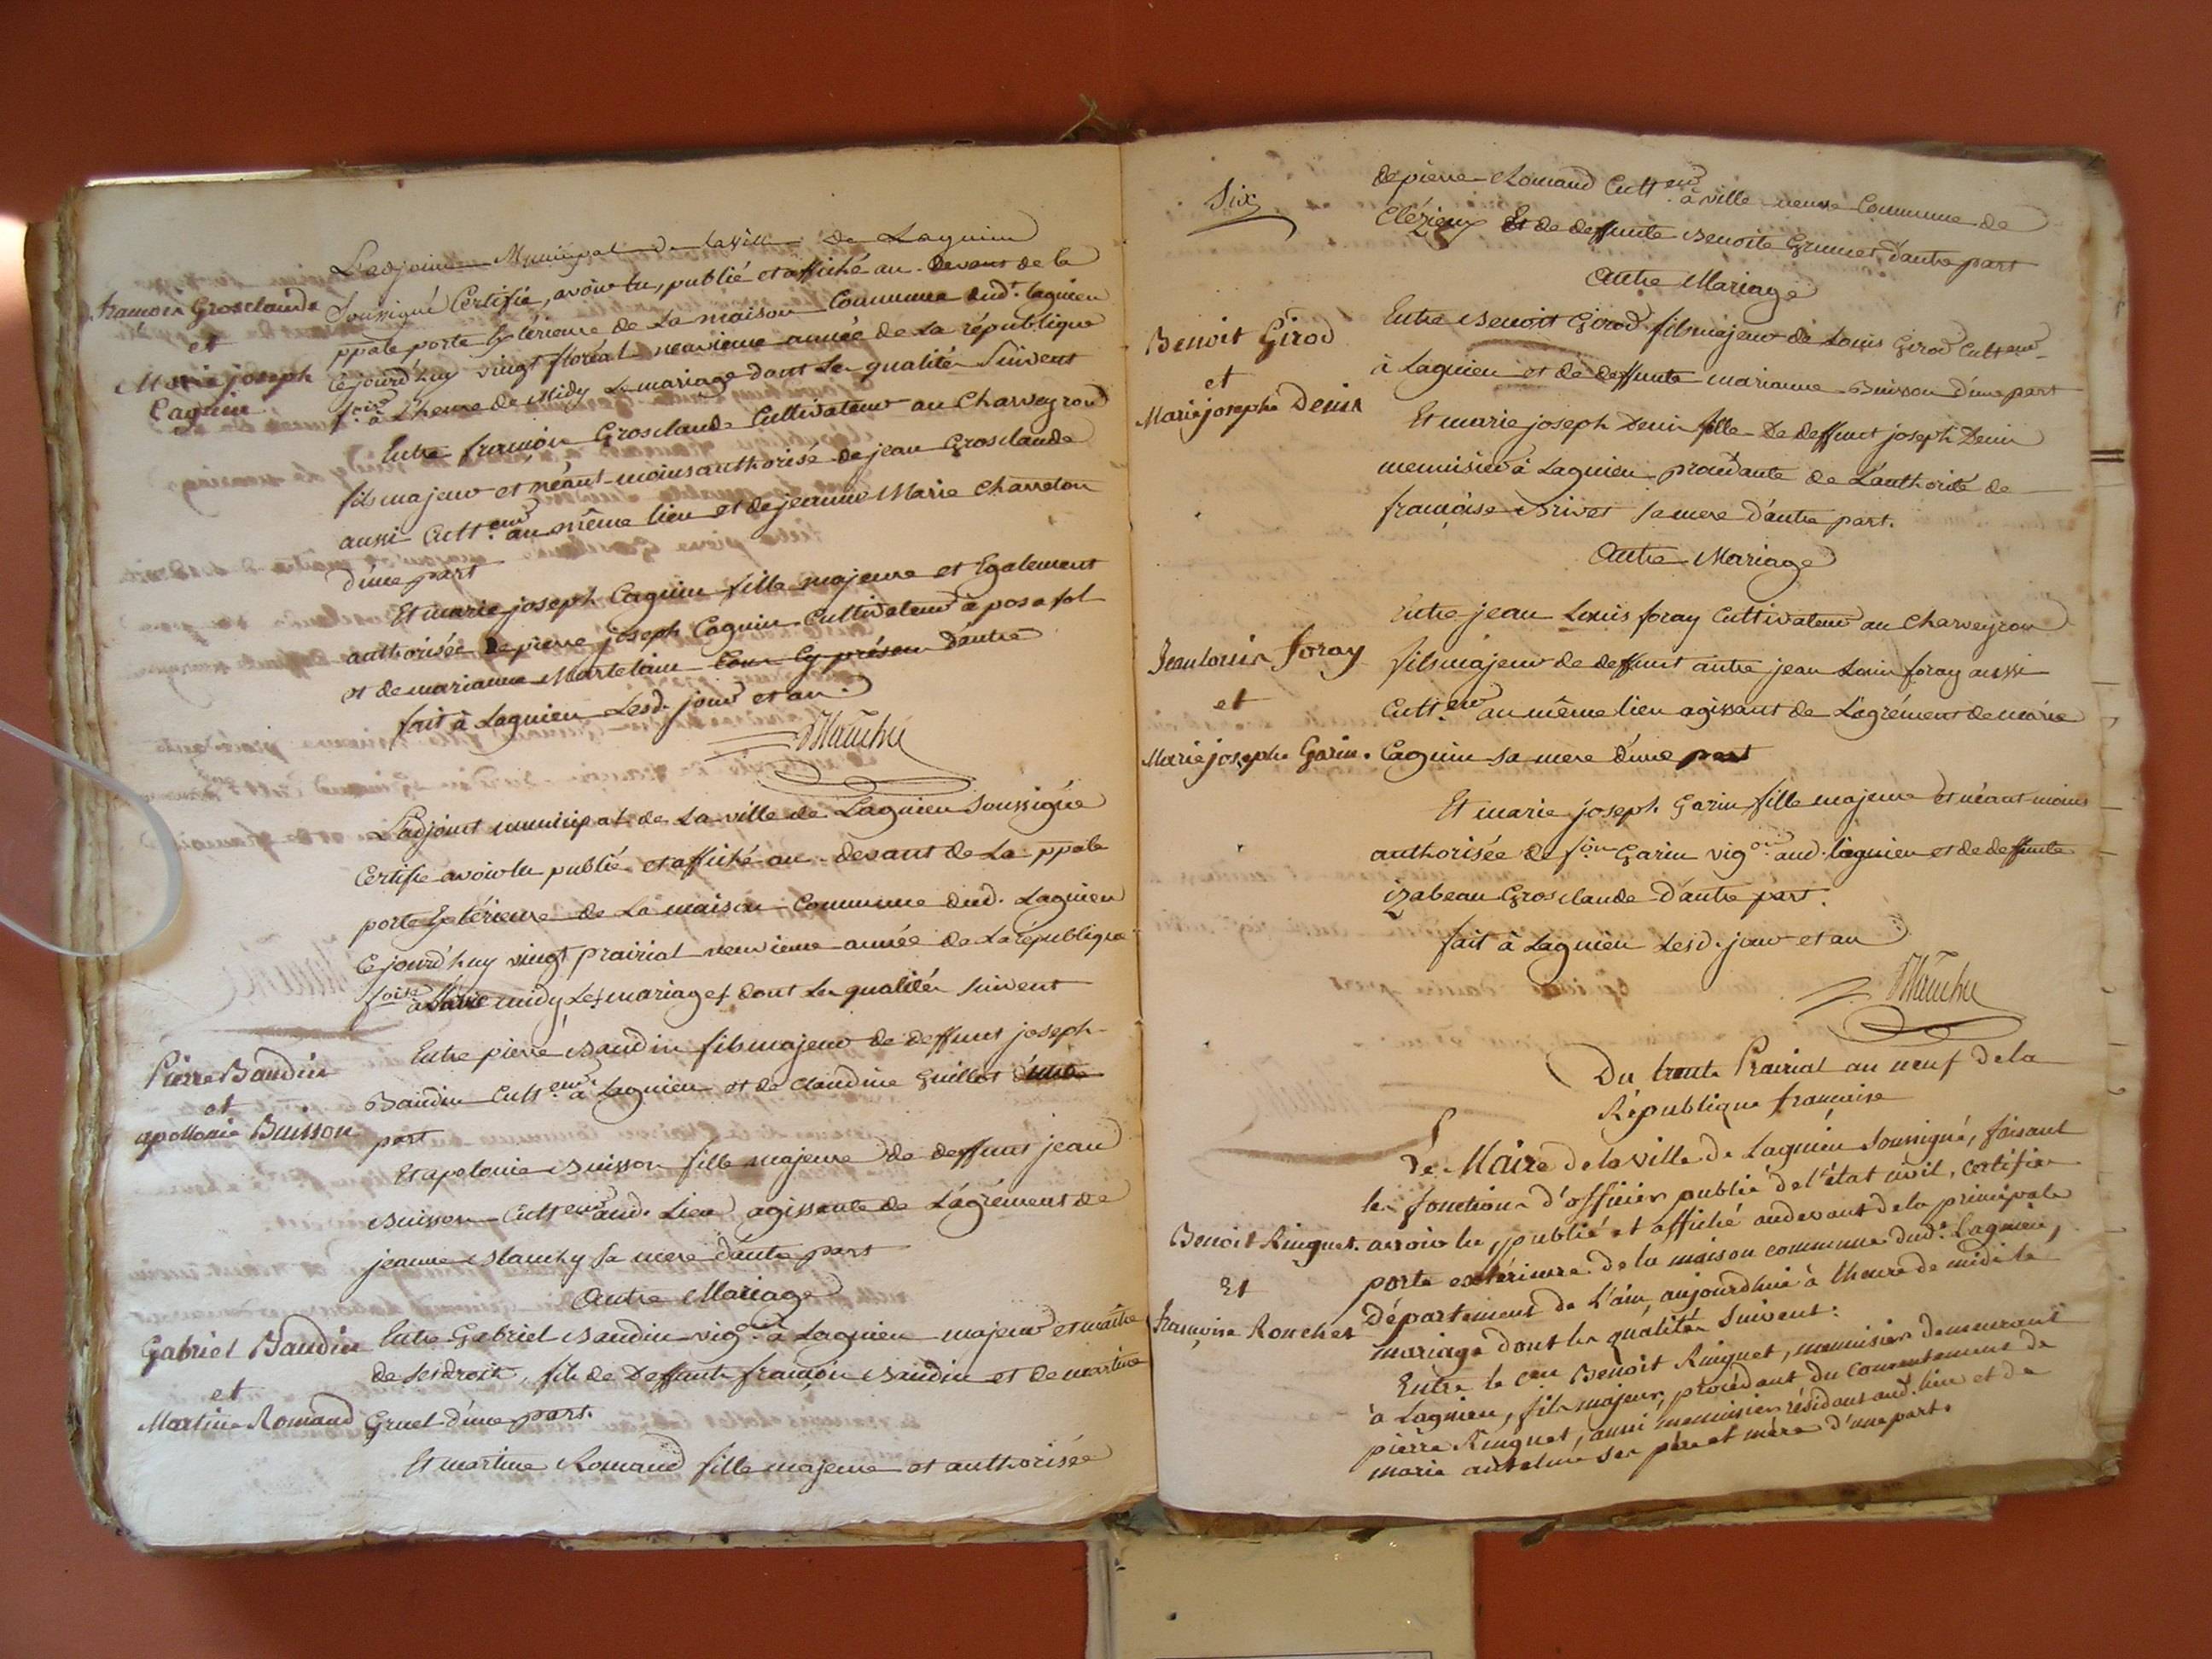 L'adjoint Municipal de la ville de Lagnieu
françois Grosclaude
et
Marie joseph
Caguin
Soussigné Certifie, avoir lu, publié et affiché au-devant de la
ppale porte Extérieure de La maison Commune dud.t lagnieu
Cejourd'huy vingt floréal neuvième année de La république
f.oise à L'heure de Midy Le mariage dont Les qualités Suivent
Entre françois Grosclaude Cultivateur au Charveyron
fils majeur et néant-moins authorisé de jean Grosclaude
aussi Cult.eur au même lieu et de jeanne Marie Charreton
d'une part
Et marie joseph Caguin fille majeure et Egalement
authorisée de pierre joseph Caguin Cultivateur à posafol
et de marianne Martelain d'autre
fait à Lagnieu Lesd. jour et an.
L'adjoint municipal de La ville de Lagnieu Soussigné
Certifie avoir lu publié et affiché au-devant de La ppale
porte Extérieure de La maison Commune dud. Lagnieu
Cejourd'huy vingt prairial neuvieme année de La république
f.oise à midy Les mariages dont Les qualités Suivent
Pierre Baudin
et
apollonie Buisson
Entre pierre Baudin fils majeur de deffunt joseph
Baudin Cult.eur à Lagnieu et de Claudine Guillot d'une
part
Et apolonie Buisson fille majeure de deffunt jean
Buisson Cult.eur aud. Lieu agissante de L'agrément de
jeanne Blanchy Sa mere d'autre part
Autre Mariage
Gabriel Baudin
et
Martine Romand
Entre Gabriel Baudin vig.on à Lagnieu majeur et maître
de Ses droits, fils de Deffunt françois Baudin et de martine
Gruel d'une part.
Et martine Romand fille majeure et authorisée
Six
de pierre Romand Cult.eur à ville neuve Commune de
Et de deffunte Benoite d'autre part
Autre Mariage
Benoit Girod
et
Marie josephe Denis
Entre Benoit Girod fils majeur de Louis Girod Cult.eur
à Lagnieu et de deffunte marianne Buisson d'une part
Et marie joseph Denis fille De deffunt joseph Denis
menuisier à Lagnieu procédante de L'authorité de
françoise Brivet Sa mere d'autre part.
Autre Mariage
Jean louis foray
et
Marie josephe Garin.
Entre jean Louis foray Cultivateur au Charveyron
fils majeur de deffunt autre jean Louis foray aussi
Cult.eur au même lieu agissant de L'agrément de marie
Caguin Sa mere d'une part
Et marie joseph Garin fille majeure et néant-moins
authorisée de f.ois Garin vig.on aud. lagnieu et de deffunte
izabeau Grosclaude d'autre part.
fait à Lagnieu Lesd. jour et an
Du trente Prairial an neuf de la
République française
Le Maire de la ville de Lagnieu Soussigné, faisant
les fonctions d'officier public de l'état civil, certifie
Benoit Ringuet.
Et
Françoise Rouchet
avoir lu, publié et affiché audevant de la principale
porte extérieure de la maison commune dud.t Lagnieu,
Département de L'ain, aujourdhui à lheure de midi le
mariage dont les qualités Suivent:
Entre le cen Benoit Ringuet, menuisier demeurant
à Lagnieu, fils majeur, procédant du consentement de
pierre Ringuet, aussi menuisier résidant aud. lieu et de
marie antelme ses père et mère d'une part.